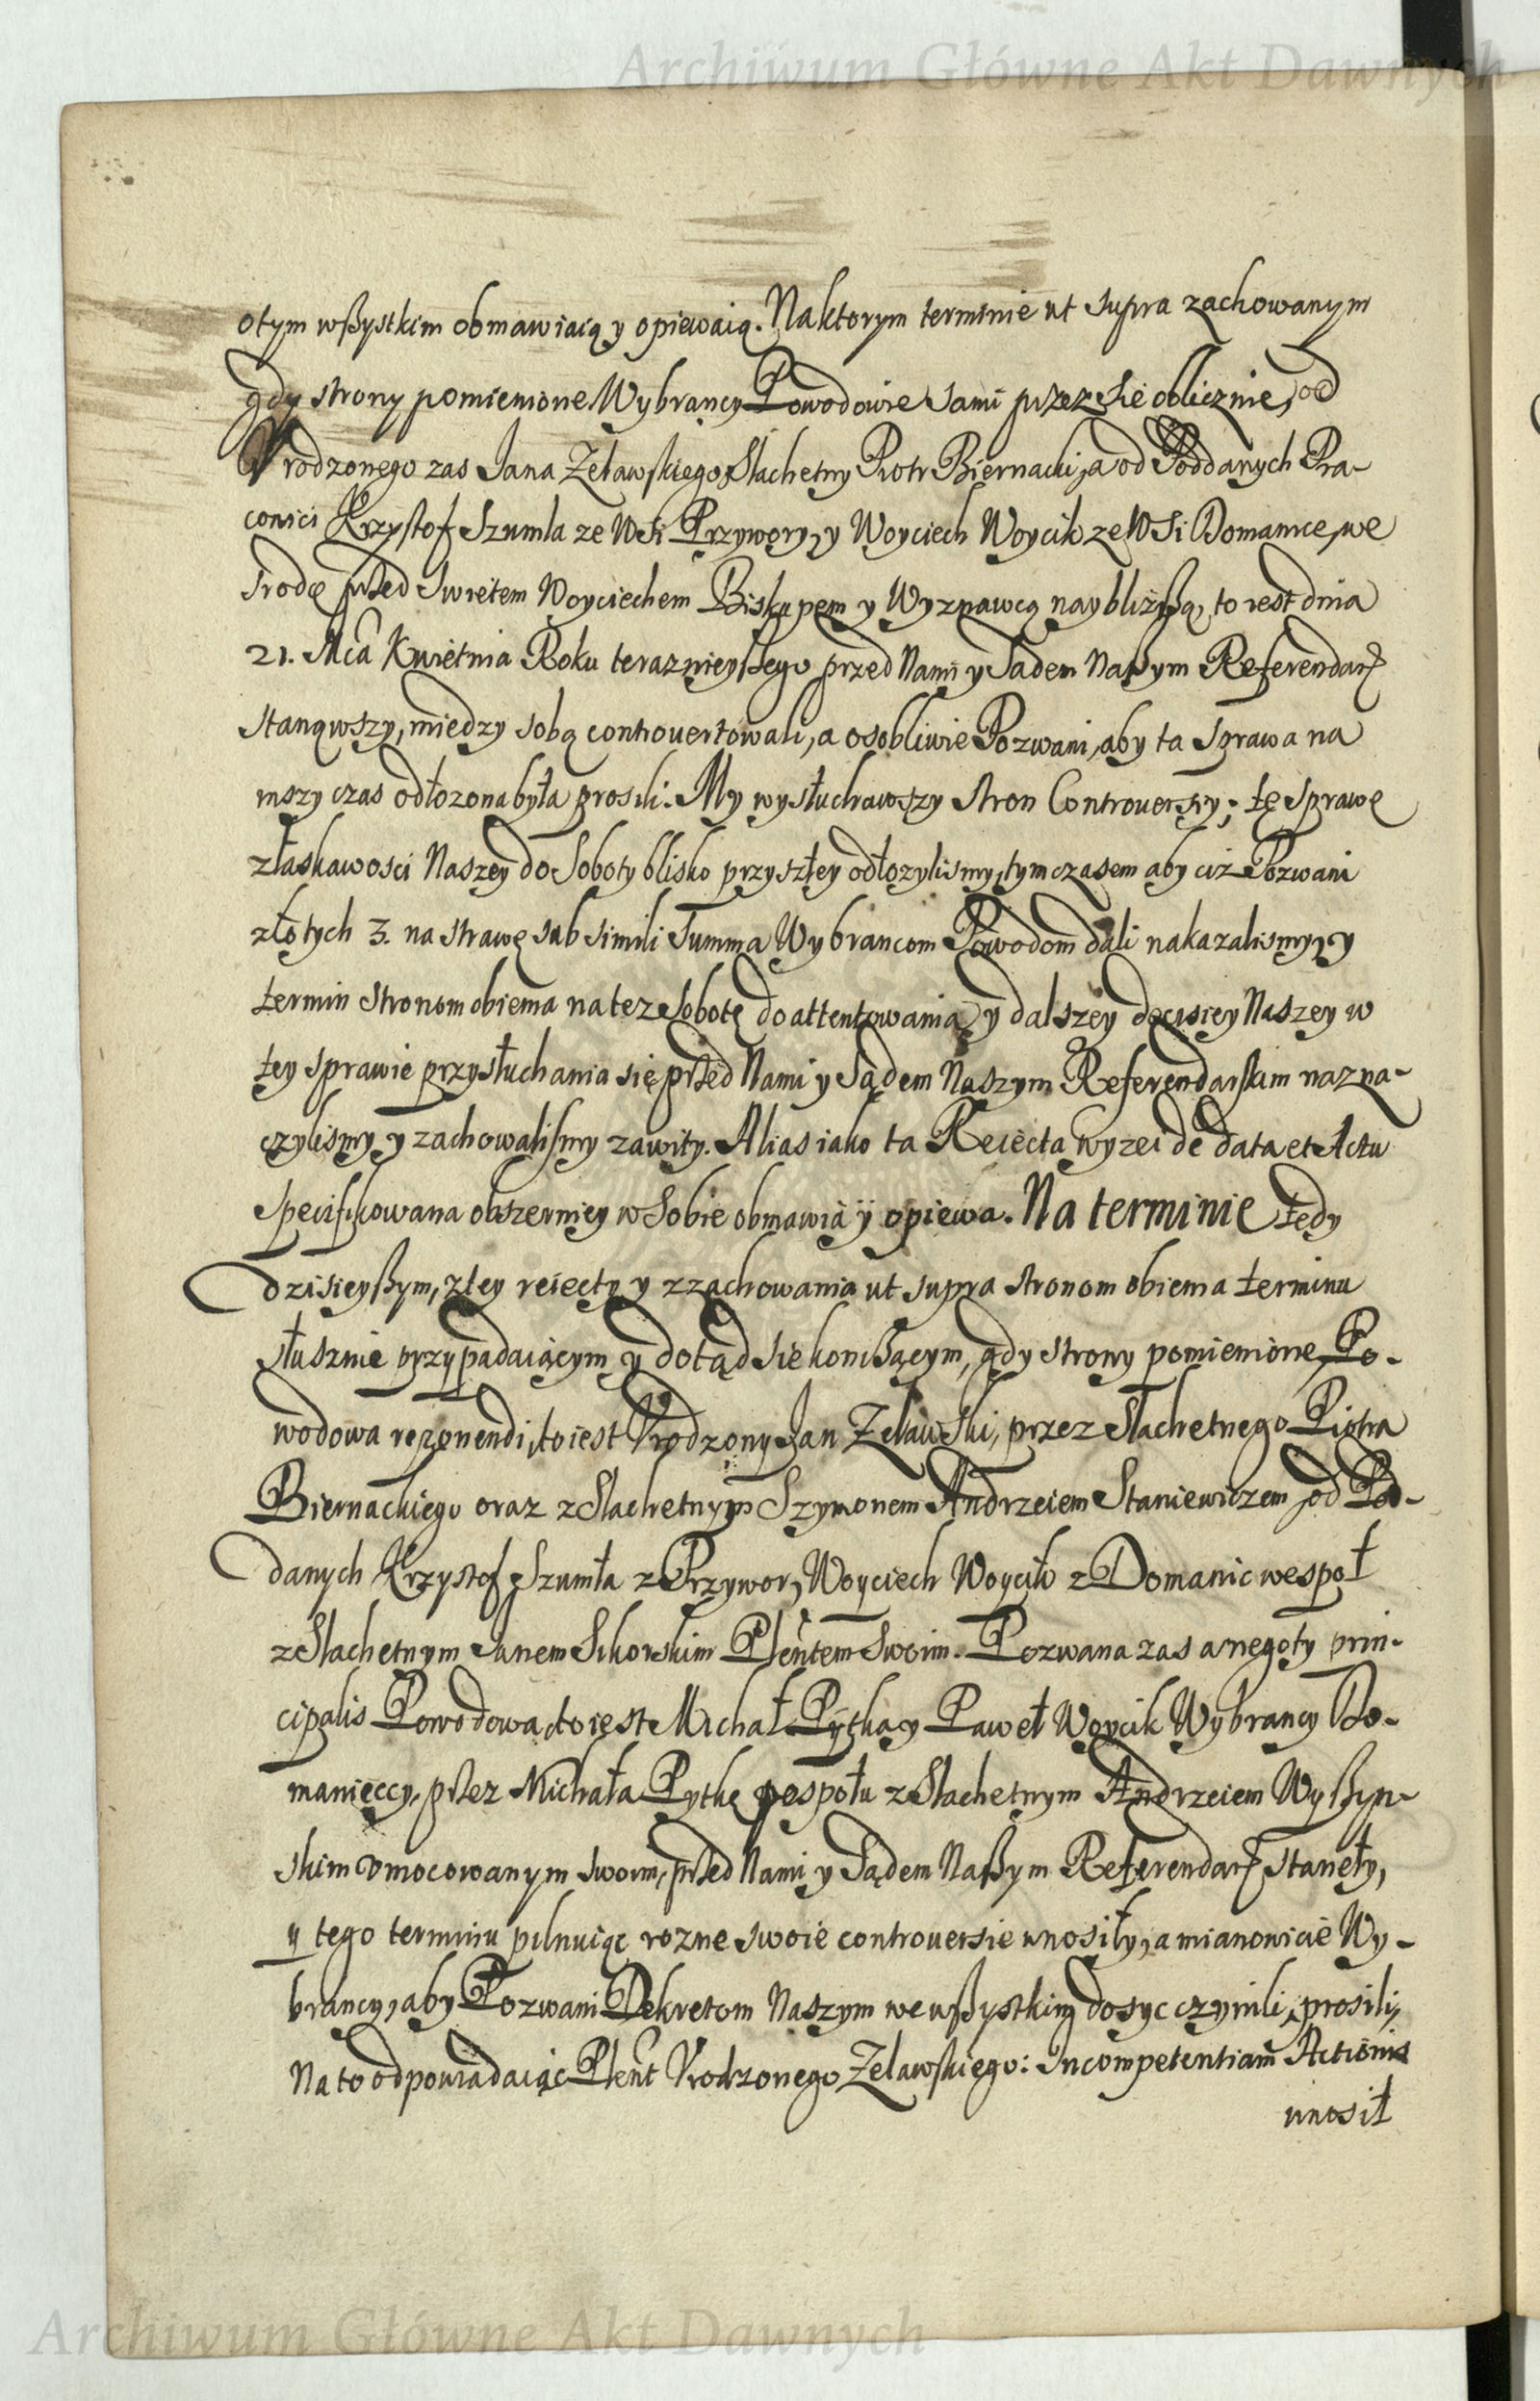 Archiwum Główne Akt Dawnych
otym wßystkim obmawiaią y opiewaią. Na ktorym terminie ut supra zachowanym
gdy strony pomienione Wybrancy Powodowie sami przez sie oblicznie, od
Vrodzonego zas Jana Zelawskiego Slachetny Piotr Biernacki, a od Poddanych Pra-
cowici Krzystof Szumla ze Wsi Przywory, y Woyciech Woycik ze Wsi Domanice, we
srodę przed Swietem Woyciechem Biskupem y Wyznawcą naybliżßą, to iest dnia
21. Mca Kwietnia Roku teraznieyßego przed Nami y Sadem Naßym Referendarz
stanąwszy, miedzy sobą controuertowali, a osobliwie Pozwani, aby ta sprawa na
inszy czas odłozona była prosili. My wysłuchawszy stron Controuersiy; tę sprawę
złaskawosci Naszey do Soboty blisko przyszłey odłozylismy, tym czasem aby ciż Pozwani
złotych 3. na strawę sub simili Summa Wybrancom Powodom dali nakazalismy, y
termin stronom obiema na tez Sobotę do attentowania y dalszey decisiey Naszey w
tey sprawie przysłuchania się przed Nami y Sądem Naszym Referendarskim nazna-
czylismy y zachowalismy zawity. Alias iako ta Reiecta wyzei de data et Actu
specifikowana obszerniey w Sobie obmawia ÿ opiewa. Na terminie tedy
dzisieyßym, z tey reiecty y z zachowania ut supra stronom obiema terminu
słusznie przypadaiącym y dotąd sie konczącym, gdy strony pomienione Po-
wodowa reponendi, to iest Vrodzony Jan Zelawski, przez Slachetnego Piotra
Biernackiego oraz z Slachetnym Szymonem Andrzeiem Staniewiczem, od Pod-
danych Krzystof Szumła z Przywor, Woyciech Woycik z Domanic wespoł
z Slachetnym Janem Sikorskim Plentem Swoim. Pozwana zas a negoty prin-
cipalis Powodowa, to iest Michał Pytka y Paweł Woycik Wybrancy Do-
manieccy, przez Michała Pytkę pospołu z Slachetnym Andrzeiem Wyßyn-
skim vmocowanym swoim, przed Nami y Sądem Naßym Referendarz stanęły,
ÿ tego terminu pilnuiąc rozne swoie controuersie wnosiły, a mianowicie Wy-
brancy, aby Pozwani Dekretom Naszym we wßystkim dosyc czynili, prosili,
Na to odpowiadaiąc Plent Vrodzonego Zelawskiego: Incompetentiam Actionis
wnosił
Archiwum Główne Akt Dawnych